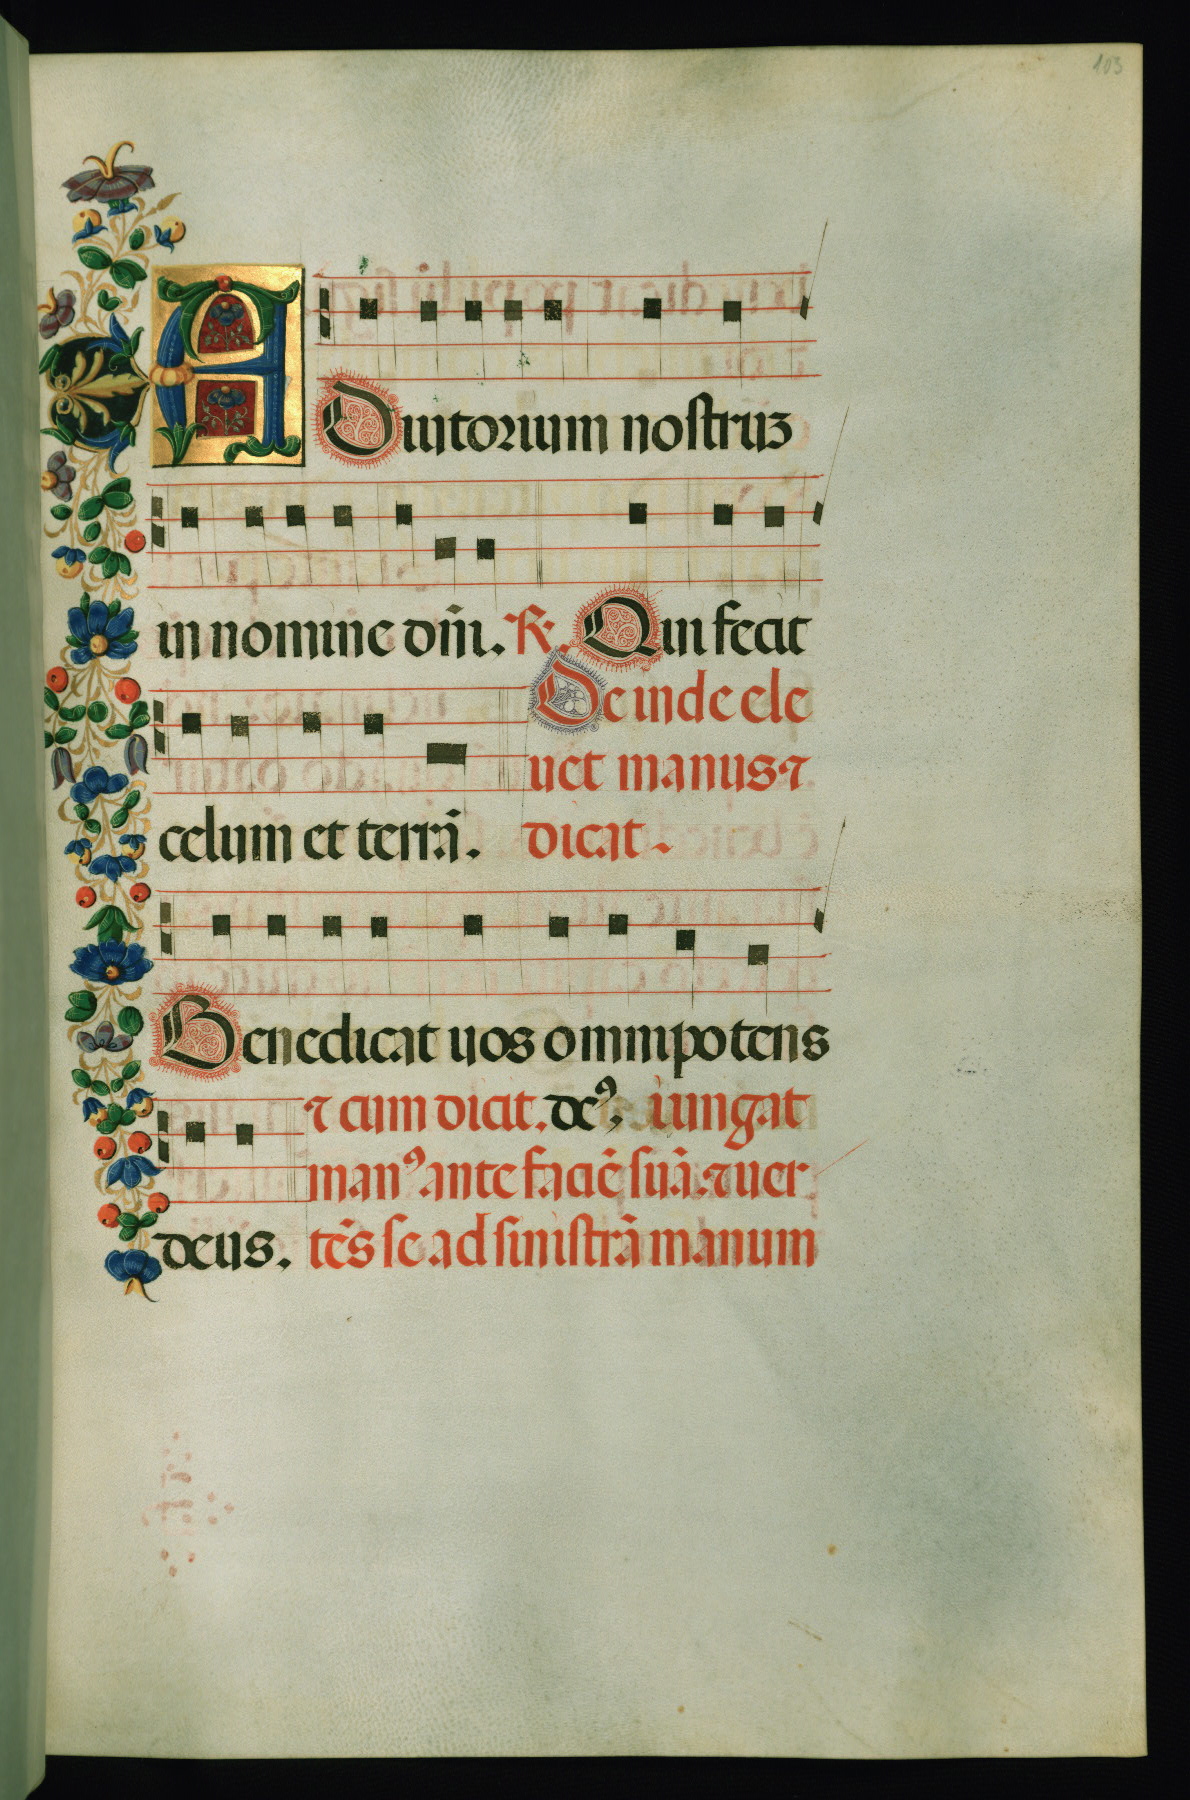 103
ADiutorium nostruꝫ
in nomine dñi. R. Qui fecit
celum et terrã.
De inde ele
uet manus ⁊
dicat.
Benedicat uos omnipotens
deus.
⁊ cum dicit. deꝰ, iungat
manꝰ ante faciẽ suã. ⁊ uer
tẽs se ad sinistrã manum